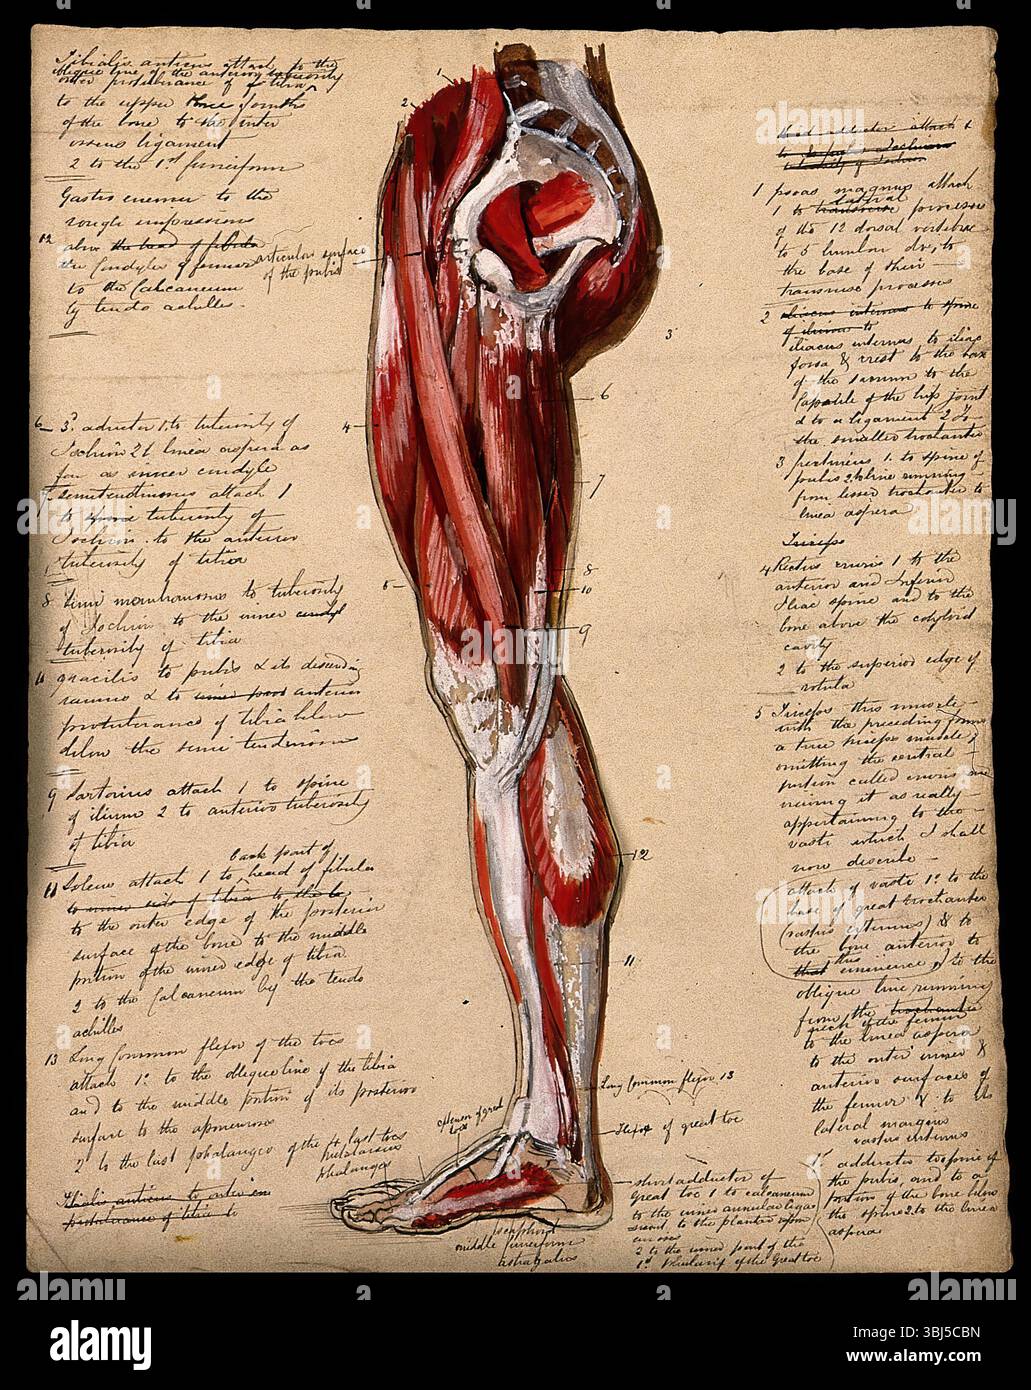 Tibialis anticus attach to the
oblique line of the anterior tuberosity
outer protuberance of tibia
to the upper three fourths
of the bone to the inter
osseus ligament
2 to the 1st cuneiform
Gastrocnemer to the
rough impressions
12 above the head of fibula
the Condyles of femur
to the Calcaneum
by tendo achilles
articular surface
of the pubis
6 3d aductor 1 to tuberosity of
Ischium 2 linea aspera as
far as inner condyle
7 semitendinosus attach 1
to spine tuberosity of
Ischium to the anterior
tuberosity of tibia
8 Semi membranosus to tuberosity
of Ischium to the inner condyl
tuberosity of tibia
gracilis to pubis & its descending
ramus & to inner part anterior
protuberance of tibia below
below the semi tendinosus
9 Sartorius attach 1 to spine
of ilium 2 to anterior tuberosity
of tibia
back part of
11 Soleus attach 1 to head of fibula
to inner side of tibia to the
to the outer edge of the posterior
surface of the bone to the middle
portion of the inner edge of tibia
2 to the Calcaneum by the tendo
achilles
13 Long Common flexor of the toes
attach 1o to the oblique line of the tibia
and to the middle portion of its posterior
surface to the aponeurosis
2 to the last phalanges of the 4 last toes
phalanges
Tibialis anticus to anterior
protuberance of tibia to
1
2
3
4
5
6
7
8
10
9
12
11
Long Common flexor 13
flexor of great toe
extensor of great
toe
scaphoid
middle cuneiform
astragalus
short adductor of
Great toe 1 to calcaneum
to the inner annular ligament
to the plantar
2 to the inner part of the
1st Phalanx of the Great toe
third adductor attach 1
to Ischium
tuberosity of Ischium
1 psoas magnus attach
lateral
1 to transverse surfaces
of the 12 dorsal vertebrae
to 5 lumbar do, to
the base of their
transverse processes
2 iliacus internus to spine
of ilium to
iliacus internus to iliac
fossa & crest to the base
of the sacrum to the
Capsule of the hip joint
& to a ligament 2 to
the smaller trochanter
3 pectineus 1 to spine of
pubis 2 to line running
from lesser trochanter to
linea aspera
Triceps
4 Rectus cruris 1 to the
anterior and Inferior
Iliac spine and to the
bone above the cotyloid
cavity
2 to the superior edge of
rotula
5 Triceps this muscle
with the preceding forms
a true triceps muscle,
omitting the central
portion called cruris and
viewing it as really
appertaining to the
vasti which I shall
now describe
attach of vasti 1o to the
base of great trochanter
(vastus externus) & to
the bone anterior to
that this eminence & to the
oblique line running
from the trochanter
neck of the femur
to the linea aspera
to the outer inner &
anterior surfaces of
the femur & to its
lateral margins
vastus internus
adductor to spine of
the pubis, and to a
portion of the bone below
the spine 2. to the linea
aspera
alamy
Image ID: 3BJ5CBN
www.alamy.com